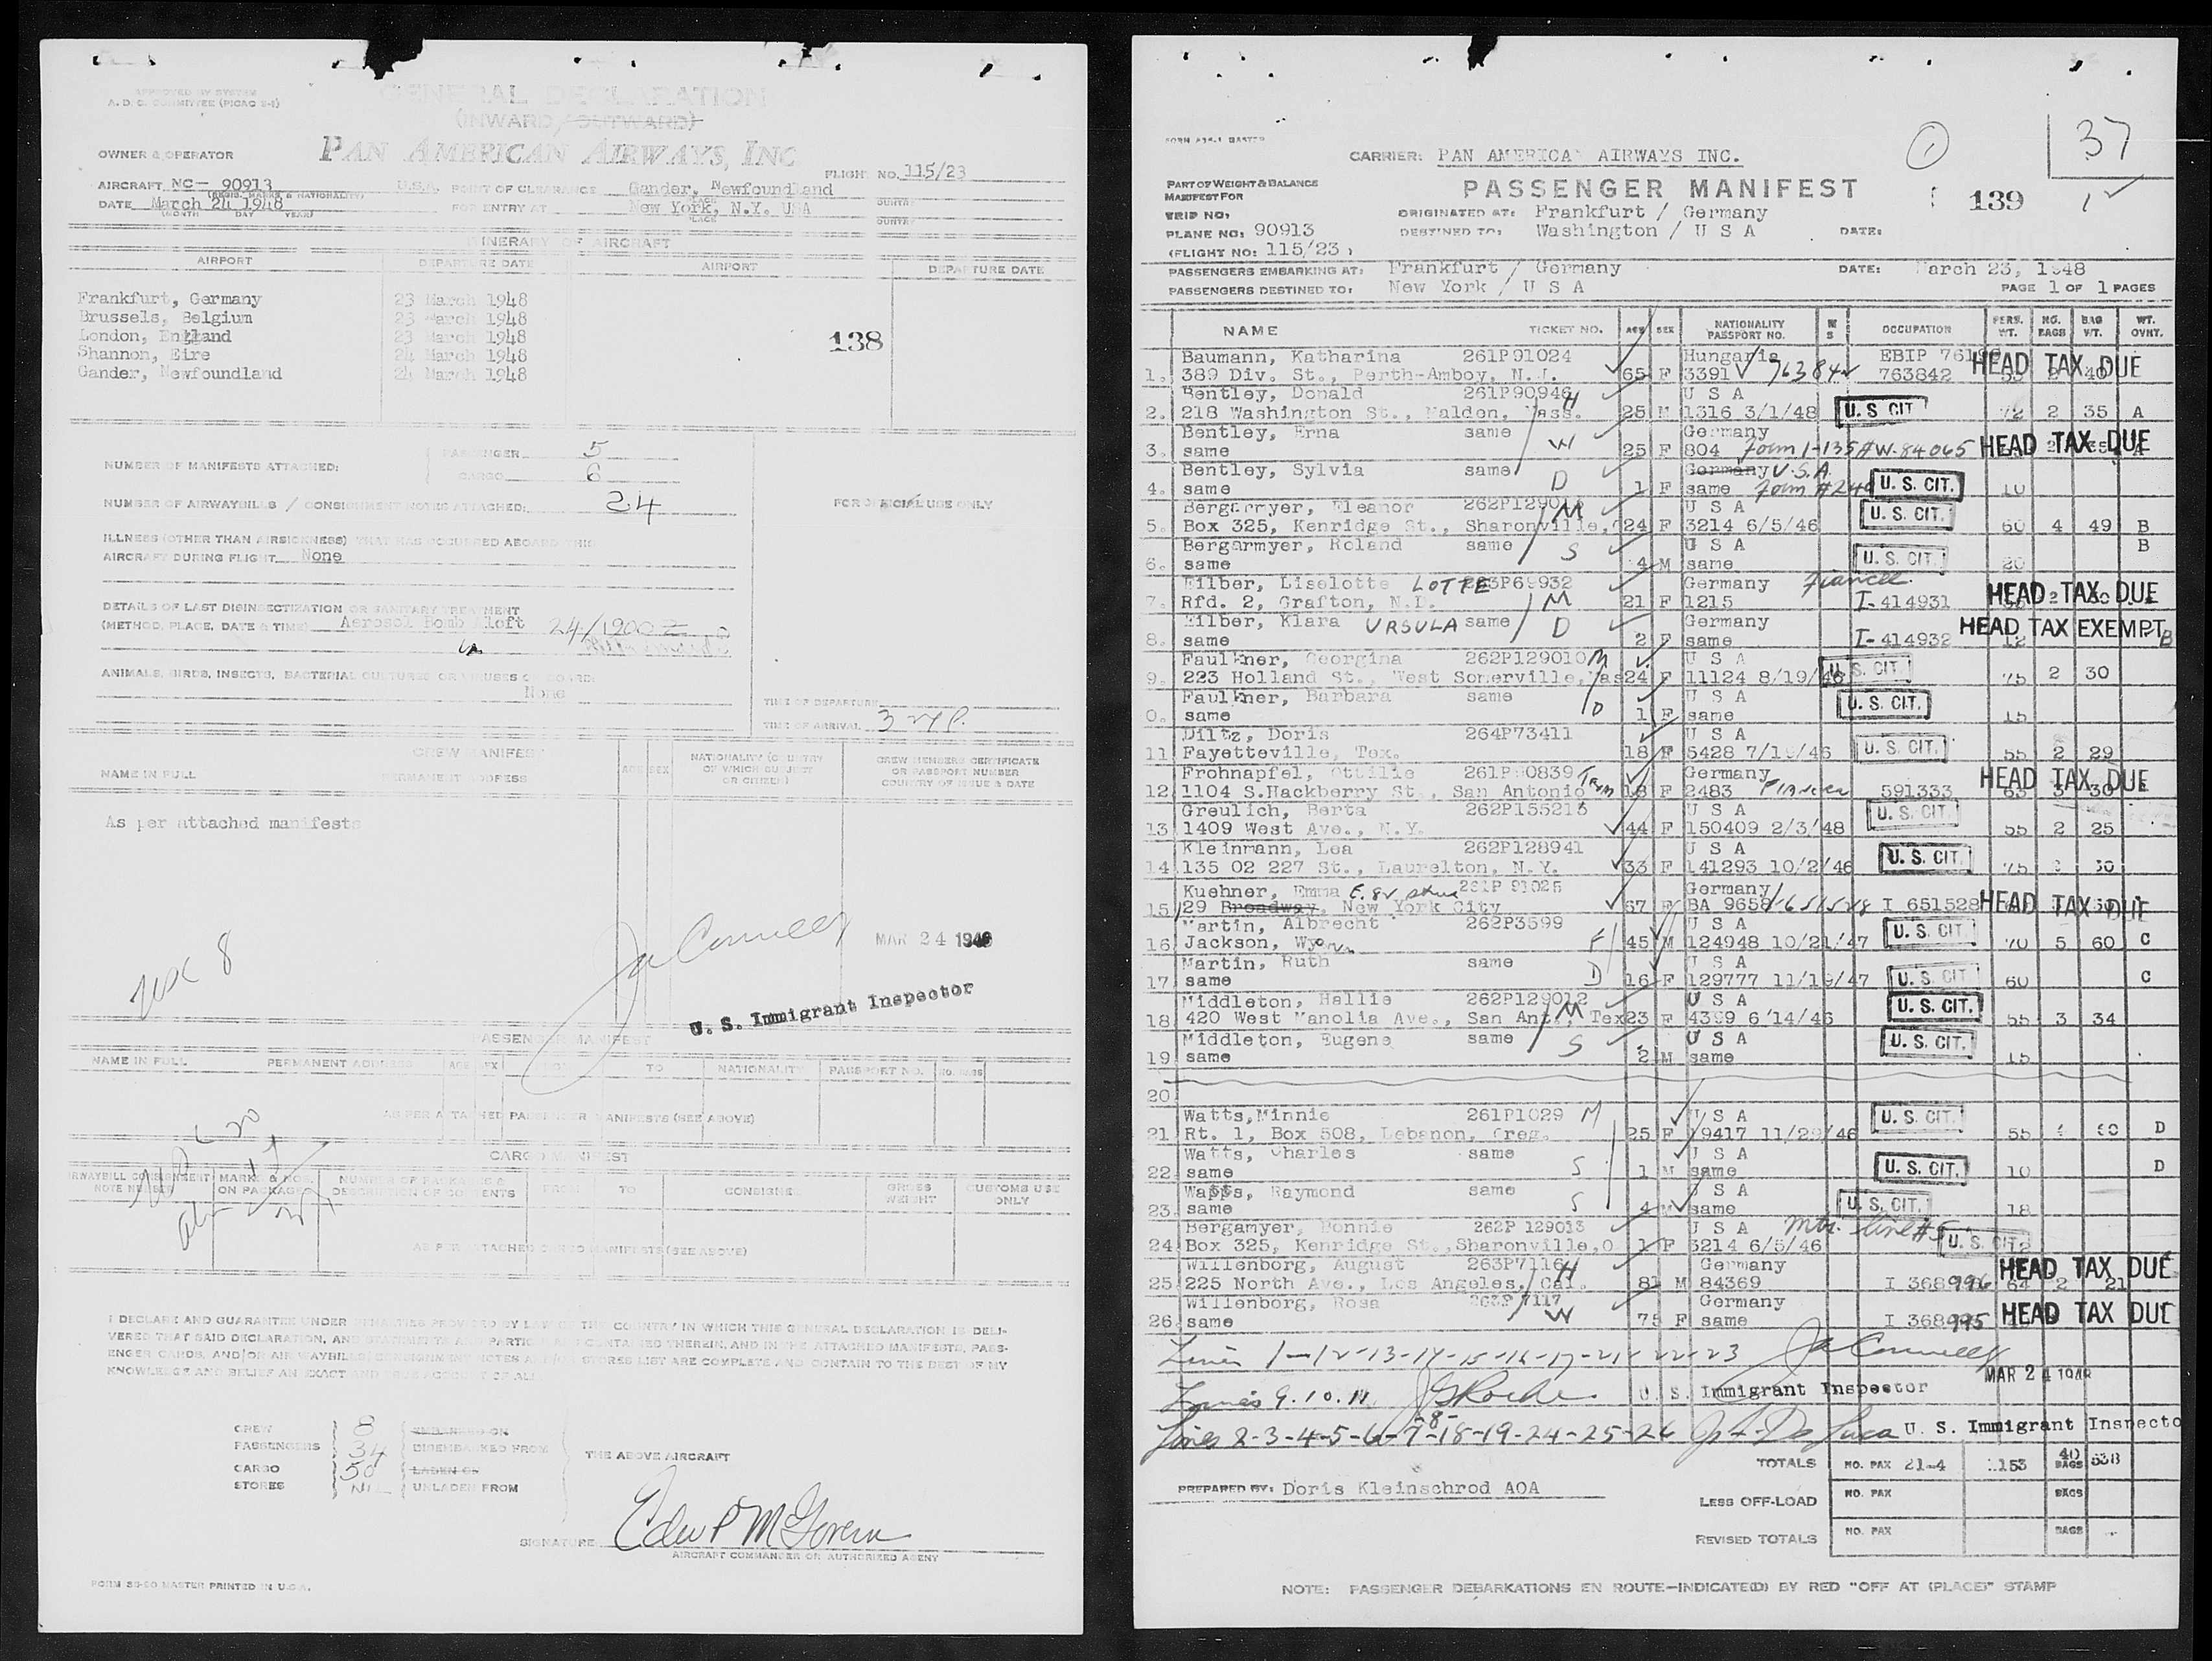 APPROVED BY SYSTEM
A. D. C. COMMITTEE (PICAO 2-1)
GENERAL DECLARATION
(INWARD/OUTWARD)
OWNER & OPERATOR PAN AMERICAN AIRWAYS, INC
FLIGHT NO. 115/23
AIRCRAFT NC- 90913 U.S.A. POINT OF CLEARANCE Gander, Newfoundland
(REGIS. MARKS & NATIONALITY) PLACE
DATE March 24 1948 FOR ENTRY AT New York, N.Y. USA
(MONTH DAY YEAR) PLACE
ITINERARY OF AIRCRAFT
AIRPORT DEPARTURE DATE AIRPORT DEPARTURE DATE
Frankfurt, Germany 23 March 1948
Brussels, Belgium 23 March 1948
London, England 23 March 1948
138
Shannon, Eire 24 March 1948
Gander, Newfoundland 24 March 1948
NUMBER OF MANIFESTS ATTACHED: PASSENGER 5
CARGO 6
NUMBER OF AIRWAYBILLS / CONSIGNMENT NOTES ATTACHED: 24
FOR OFFICIAL USE ONLY
ILLNESS (OTHER THAN AIRSICKNESS) THAT HAS OCCURRED ABOARD THIS
AIRCRAFT DURING FLIGHT None
DETAILS OF LAST DISINSECTIZATION OR SANITARY TREATMENT
(METHOD, PLACE, DATE & TIME) Aerosol Bomb Aloft 24/1900Z
ANIMALS, BIRDS, INSECTS, BACTERIAL CULTURES OR VIRUSES ON BOARD:
None
TIME OF DEPARTURE
TIME OF ARRIVAL
CREW MANIFEST
NAME IN FULL PERMANENT ADDRESS AGE SEX NATIONALITY (COUNTRY OF WHICH SUBJECT OR CITIZEN) CREW MEMBERS CERTIFICATE OR PASSPORT NUMBER COUNTRY OF ISSUE & DATE
As per attached manifests
MAR 24 1948
U. S. Immigrant Inspector
PASSENGER MANIFEST
NAME IN FULL PERMANENT ADDRESS AGE SEX FROM TO NATIONALITY PASSPORT NO. NO. BAGS
AS PER ATTACHED PASSENGER MANIFESTS (SEE ABOVE)
CARGO MANIFEST
AIRWAYBILL CONSIGNMENT NOTE NUMBER MARKS & NOS. ON PACKAGES NUMBER OF PACKAGES & DESCRIPTION OF CONTENTS FROM TO CONSIGNEE GROSS WEIGHT CUSTOMS USE ONLY
AS PER ATTACHED CARGO MANIFESTS (SEE ABOVE)
I DECLARE AND GUARANTEE UNDER PENALTIES PROVIDED BY LAW OF THE COUNTRY IN WHICH THIS GENERAL DECLARATION IS DELI-
VERED THAT SAID DECLARATION, AND STATEMENTS AND PARTICULARS CONTAINED THEREIN, AND IN THE ATTACHED MANIFESTS, PASS-
ENGER CARDS, AND/OR AIR WAYBILLS/CONSIGNMENT NOTES AND/OR STORES LIST ARE COMPLETE AND CONTAIN TO THE BEST OF MY
KNOWLEDGE AND BELIEF AN EXACT AND TRUE ACCOUNT OF ALL
CREW 8 EMBARKED ON
PASSENGERS 34 DISEMBARKED FROM
THE ABOVE AIRCRAFT
CARGO 50 LADEN ON
STORES NIL UNLADEN FROM
SIGNATURE
AIRCRAFT COMMANDER OR AUTHORIZED AGENT
FORM 30-50 MASTER PRINTED IN U.S.A.
1
37
CARRIER: PAN AMERICAN AIRWAYS INC.
PART OF WEIGHT & BALANCE
MANIFEST FOR
PASSENGER MANIFEST
139
TRIP NO:
ORIGINATED AT: Frankfurt / Germany
PLANE NO: 90913 DESTINED TO: Washington / U S A DATE:
(FLIGHT NO: 115/23 )
PASSENGERS EMBARKING AT: Frankfurt / Germany DATE: March 23, 1948
PASSENGERS DESTINED TO: New York / U S A PAGE 1 OF 1 PAGES
NAME TICKET NO. AGE SEX NATIONALITY PASSPORT NO. M S OCCUPATION PERS. WT. NO. BAGS BAG WT. WT. OVHT.
Baumann, Katharina 261P91024 Hungaria EBIP HEAD TAX DUE
1. 389 Div. St., Perth-Amboy, N.J. 65 F 3391 763842
Bentley, Donald 261P90946 H U S A
2. 218 Washington St., Malden, Mass. 25 M 1316 3/1/48 U. S CIT 72 2 35 A
Bentley, Erna same W Germany
3. same 25 F 804 Form I-135 #W-84065 HEAD TAX DUE
Bentley, Sylvia same D Germany U.S.A.
4. same 1 F same U. S. CIT. 10
Bergarmyer, Eleanor M U S A
5. Box 325, Kenridge St., Sharonville, 24 F 3214 6/5/46 U. S. CIT. 60 4 49 B
Bergarmyer, Roland same S U S A B
6. same 4 M same U. S. CIT. 20
Eilber, Liselotte LOTTE 263P69932 Germany Fiancee
7. Rfd. 2, Grafton, N.D. M 21 F 1215 I-414931 HEAD TAX DUE
Eilber, Klara URSULA same D Germany
8. same 2 F same I-414932 HEAD TAX EXEMPT B
Faulkner, Georgina 262P129010 M U S A
9. 223 Holland St., West Somerville, Mas 24 F 11124 8/19/46 U. S. CIT. 75 2 30
Faulkner, Barbara same D U S A
0. same 1 F same U. S. CIT. 15
Diltz, Doris 264P73411 U S A
11 Fayetteville, Tex. 18 F 5428 7/19/46 U. S. CIT. 55 2 29
Frohnapfel, Ottilie Germany
12 1104 S.Hackberry St., San Antonio 18 F 2483 591333 HEAD TAX DUE
Greulich, Berta U S A
13 1409 West Ave., N.Y. 44 F 150409 2/3/48 U. S. CIT. 55 2 25
Kleinmann, Lea 262P128941 U S A
14 135 02 227 St., Laurelton, N.Y. 33 F 141293 10/2/46 U. S. CIT. 75
Kuehner, Emma 261P 91025 Germany
15 29 Broadway, New York City 67 F BA 9658 I 651528 HEAD TAX DUE
Martin, Albrecht 262P3599 U S A
16 Jackson, Wyo F 45 M 124948 10/21/47 U. S. CIT. 70 5 60 C
Martin, Ruth same U S A
17 same D 16 F 129777 11/19/47 U. S. CIT 60 C
Middleton, Hallie 262P129012 U S A
18 420 West Manolia Ave., San Ant., Tex M 23 F 4399 6/14/46 U. S. CIT. 55 3 34
Middleton, Eugene same U S A
19 same S 2 M same U. S. CIT. 15
20
Watts, Minnie 261P1029 M U S A
21 Rt. 1, Box 508, Lebanon, Oreg. 25 F 19417 11/29/46 U. S. CIT. 55 4 D
Watts, Charles same U S A
22 same S 1 M same U. S. CIT. 10 D
Watts, Raymond same U S A
23 same S 4 M same U. S. CIT. 18
Bergamyer, Bonnie 262P 129013 U S A line #5
24 Box 325, Kenridge St.,Sharonville,O 1 F 3214 6/5/46 U. S. CIT.
Willenborg, August H Germany
25 225 North Ave., Los Angeles, Cal. 81 M 84369 I 368996 64 2 21 HEAD TAX DUE
Willenborg, Rosa W Germany
26 same 75 F same I 368995 HEAD TAX DUE
Lines 1-12-13-14-15-16-17-21-22-23
MAR 24 1948
Lines 9.10.11. U. S. Immigrant Inspector
-8-
Lines 2-3-4-5-6-7-18-19-24-25-26 U. S. Immigrant Inspecto
TOTALS NO. PAX 21-4 1153 40 BAGS 538
PREPARED BY: Doris Kleinschrod AOA
LESS OFF-LOAD NO. PAX BAGS
REVISED TOTALS NO. PAX BAGS
NOTE: PASSENGER DEBARKATIONS EN ROUTE-INDICATE(D) BY RED "OFF AT (PLACE)" STAMP